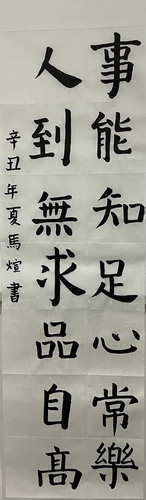 事能知足心常樂
人到無求品自高
辛丑年夏馬煊書